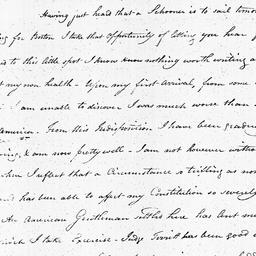 Having just heard that a Schooner is to sail tomor
ing for Boston I take that opportunity of letting you hear f
ed to this little spot I know know nothing worth writing a
t my own health - Upon my first arrival, from some
I am unable to discover I was much worse than
America. From this Indisposition I have been gradua
ing, & am now pretty well - I am not however witho
when I reflect that a Circumstance so trifling as no
and has been able to affect my Constitution so severely
An American Gentleman settled here has lent me
which I take Exercise - Judge Territt has been good e